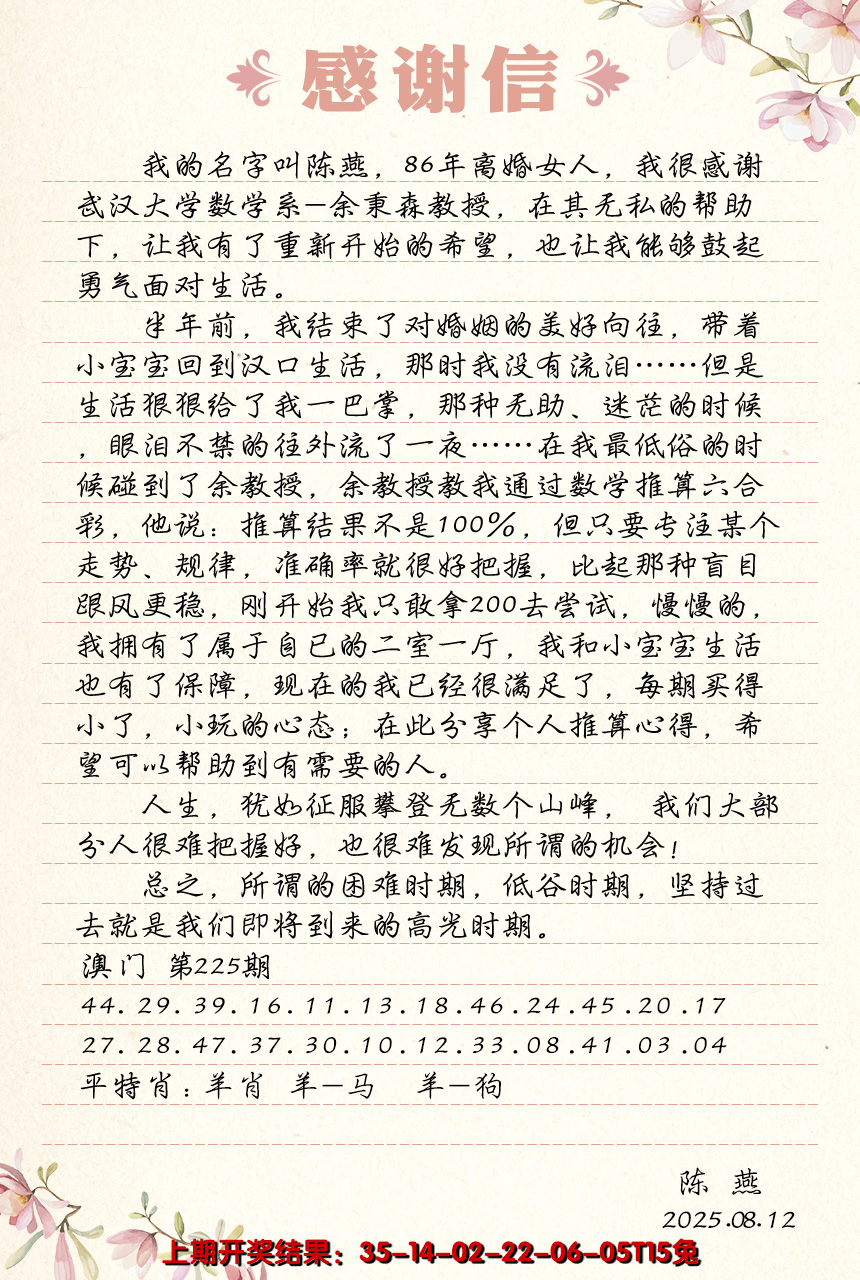 感谢信
我的名字叫陈燕，86年离婚女人，我很感谢
武汉大学数学系—余秉森教授，在其无私的帮助
下，让我有了重新开始的希望，也让我能够鼓起
勇气面对生活。
半年前，我结束了对婚姻的美好向往，带着
小宝宝回到汉口生活，那时我没有流泪……但是
生活狠狠给了我一巴掌，那种无助、迷茫的时候
，眼泪不禁的往外流了一夜……在我最低俗的时
候碰到了余教授，余教授教我通过数学推算六合
彩，他说：推算结果不是100%，但只要专注某个
走势、规律，准确率就很好把握，比起那种盲目
跟风更稳，刚开始我只敢拿200去尝试，慢慢的，
我拥有了属于自已的二室一厅，我和小宝宝生活
也有了保障，现在的我已经很满足了，每期买得
小了，小玩的心态；在此分享个人推算心得，希
望可以帮助到有需要的人。
人生，犹如征服攀登无数个山峰， 我们大部
分人很难把握好，也很难发现所谓的机会！
总之，所谓的困难时期，低谷时期，坚持过
去就是我们即将到来的高光时期。
澳门 第225期
44.29.39.16.11.13.18.46.24.45.20.17
27.28.47.37.30.10.12.33.08.41.03.04
平特肖：羊肖 羊—马 羊—狗
陈 燕
2025.08.12
上期开奖结果：35-14-02-22-06-05T15兔